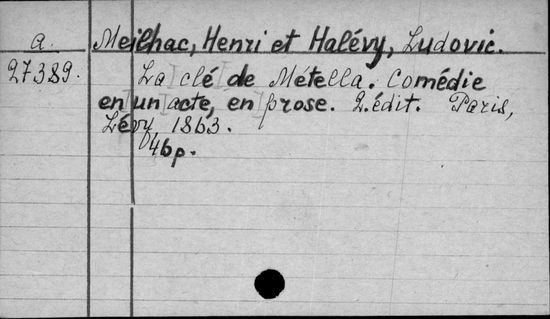 a. Meilhac, Henri et Halévy, Ludovic.
27389. La clé de Métella. Comédie
en un acte, en prose. 2. édit. Paris,
Lévy, 1863.
46p.